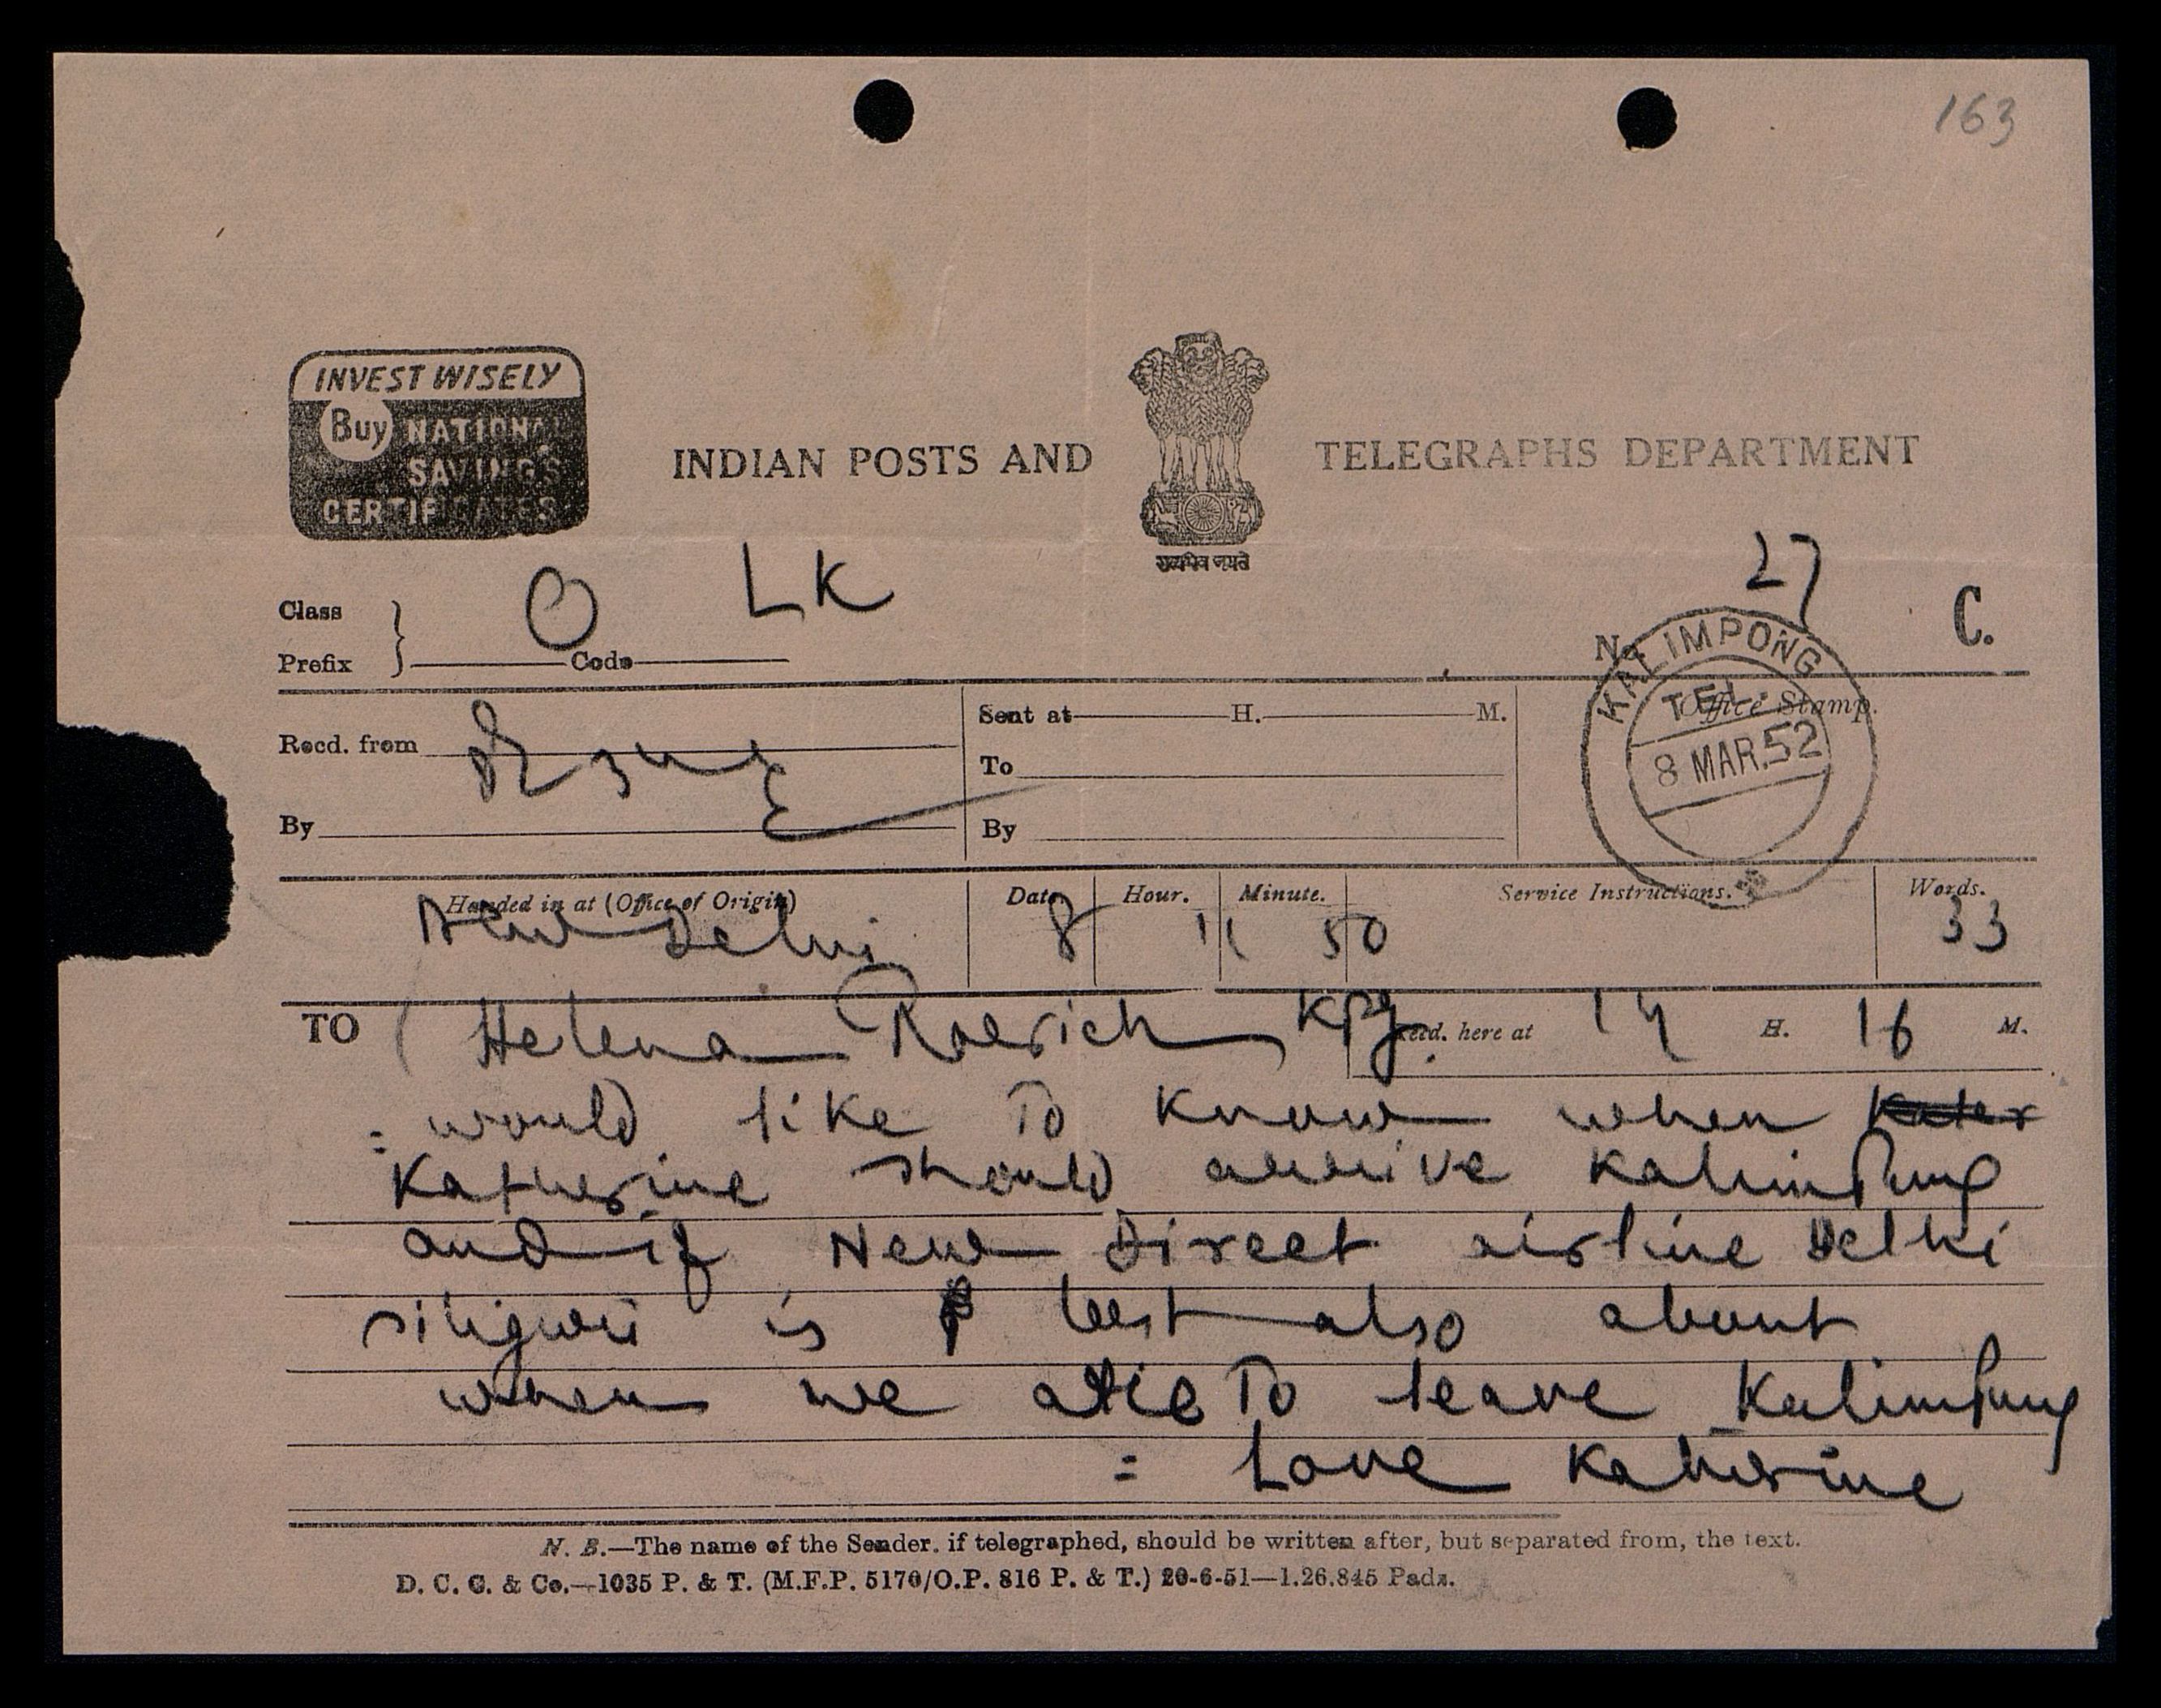 163
INVEST WISELY
Buy NATIONAL
SAVINGS
CERTIFICATES
INDIAN POSTS AND TELEGRAPHS DEPARTMENT
सत्यमेव जयते
27
Class O LK
Prefix Code
No. C.
KALIMPONG
TEL.
8 MAR.52
Office Stamp.
Recd. from
By
Sent at H. M.
To
By
Handed in at (Office of Origin) Date Hour. Minute. Service Instructions. Words.
New Delhi 8 11 50 33
TO Helena Roerich KPG Recd. here at 14 H. 16 M.
= would like To know when Kater
Katherine should arrive Kalimpong
and if New Direct airline Delhi
siliguri is best also about
when we able To leave Kalimpong
= Love Katherine
N. B.—The name of the Sender, if telegraphed, should be written after, but separated from, the text.
D. C. G. & Co.—1035 P. & T. (M.F.P. 5170/O.P. 816 P. & T.) 20-6-51—1.26.845 Pads.